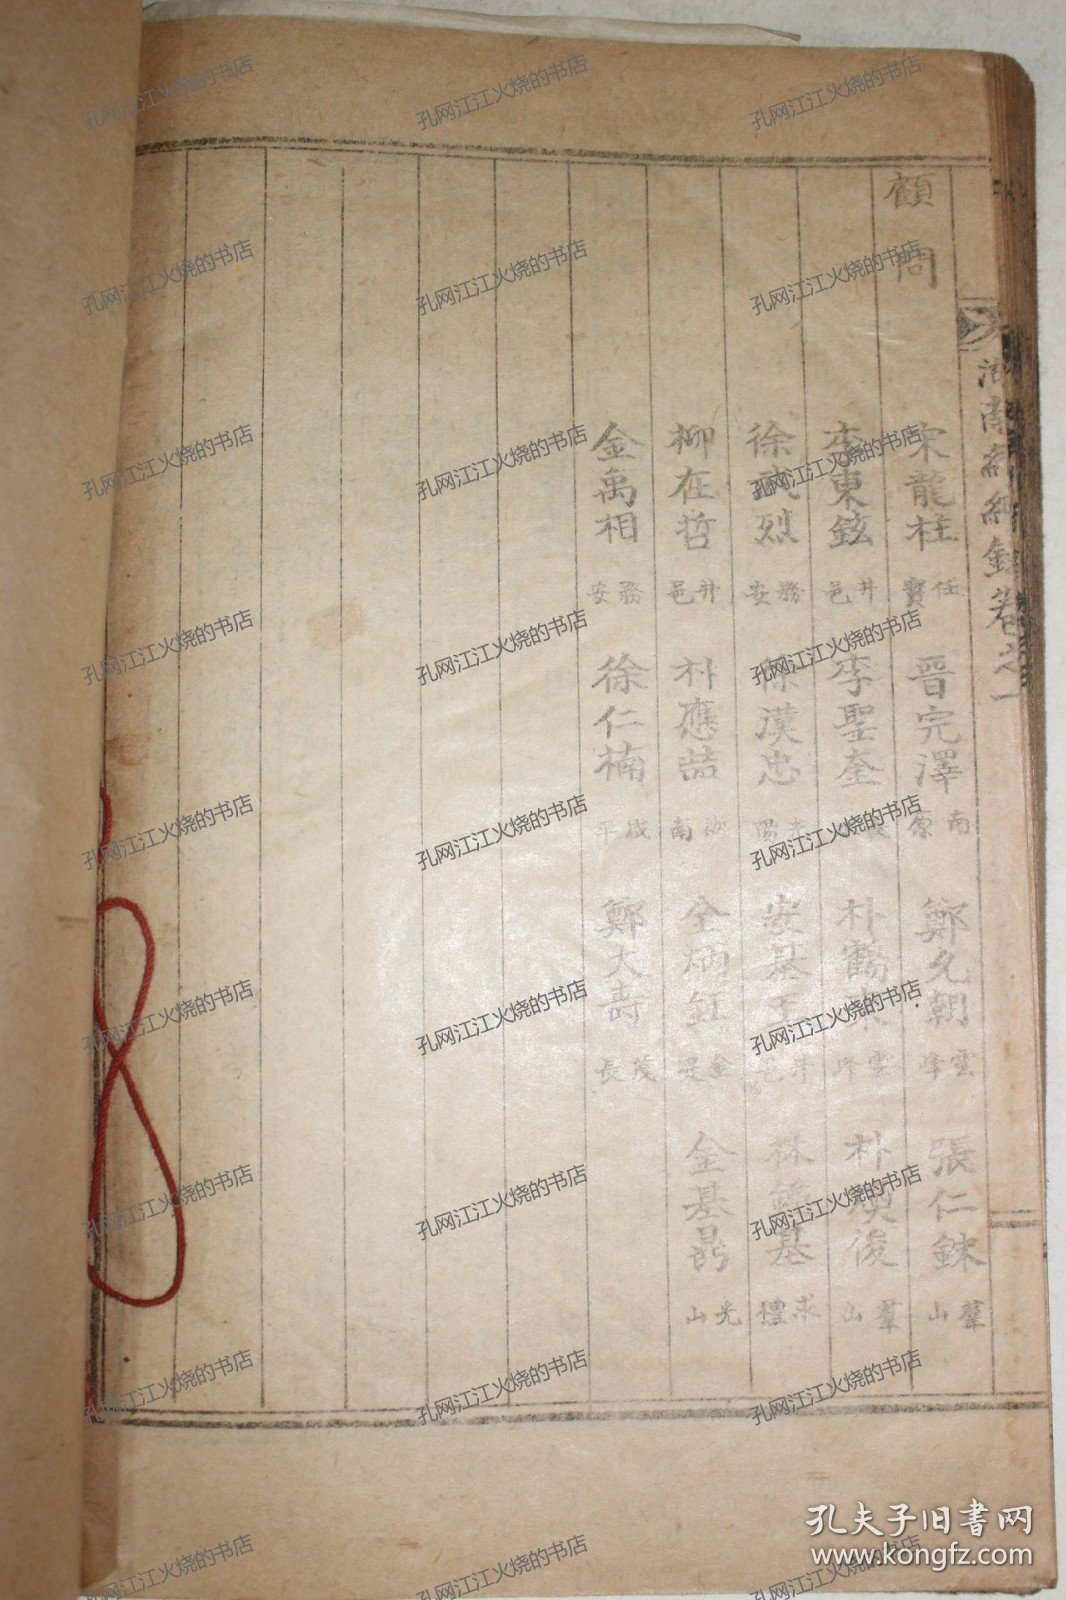 顧問
宋龍柱 任實 晋完澤 南原 鄭允朝 雲峰 張仁銖 羣山
李東鉉 井邑 李聖奎 朴鶴 雲峰 朴煥俊 羣山
徐武烈 務安 陳漢忠 陽 安基 井邑 林鎬基 求禮
柳在哲 井邑 朴應喆 海南 全炳釭 金堤 金基昺 光山
金禹相 務安 徐仁楠 咸平 鄭大壽 茂長
湖南 續錄卷之一
孔网江江火烧的书店
孔夫子旧书网
www.kongfz.com